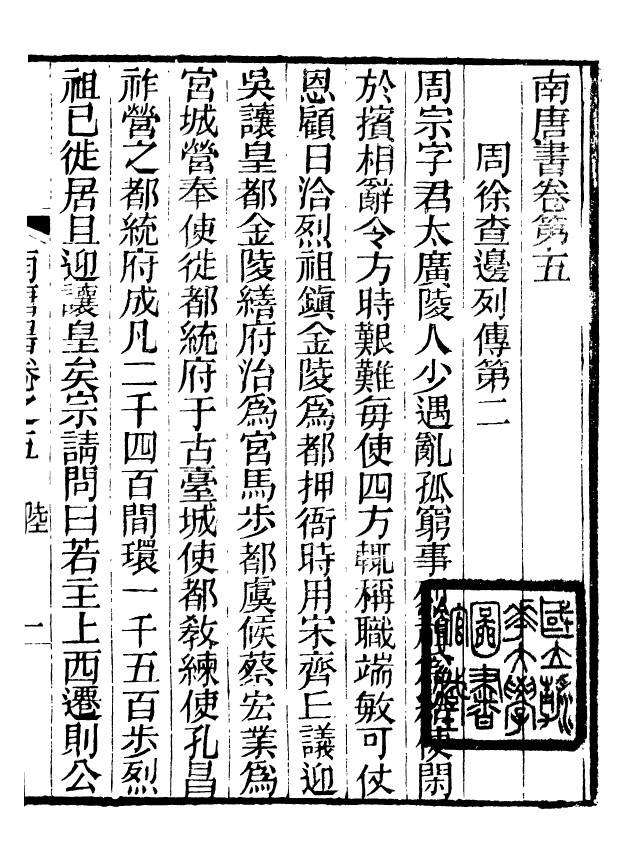 南唐書卷第五
周徐查邊列傳第二
周宗字君太廣陵人少遇亂孤窮事烈祖爲給使閑
於擯相辭令方時艱難每使四方輒稱職端敏可仗
恩顧日洽烈祖鎮金陵爲都押衙時用宋齊丘議迎
吳讓皇都金陵繕府治爲宮馬步都虞候蔡宏業爲
宮城營奉使徙都統府于古臺城使都敎練使孔昌
祚營之都統府成凡二千四百間環一千五百步烈
祖已徙居且迎讓皇矣宗請問曰若主上西遷則公
南唐書卷之五 陸 一
國立
華大學
圖書
館藏